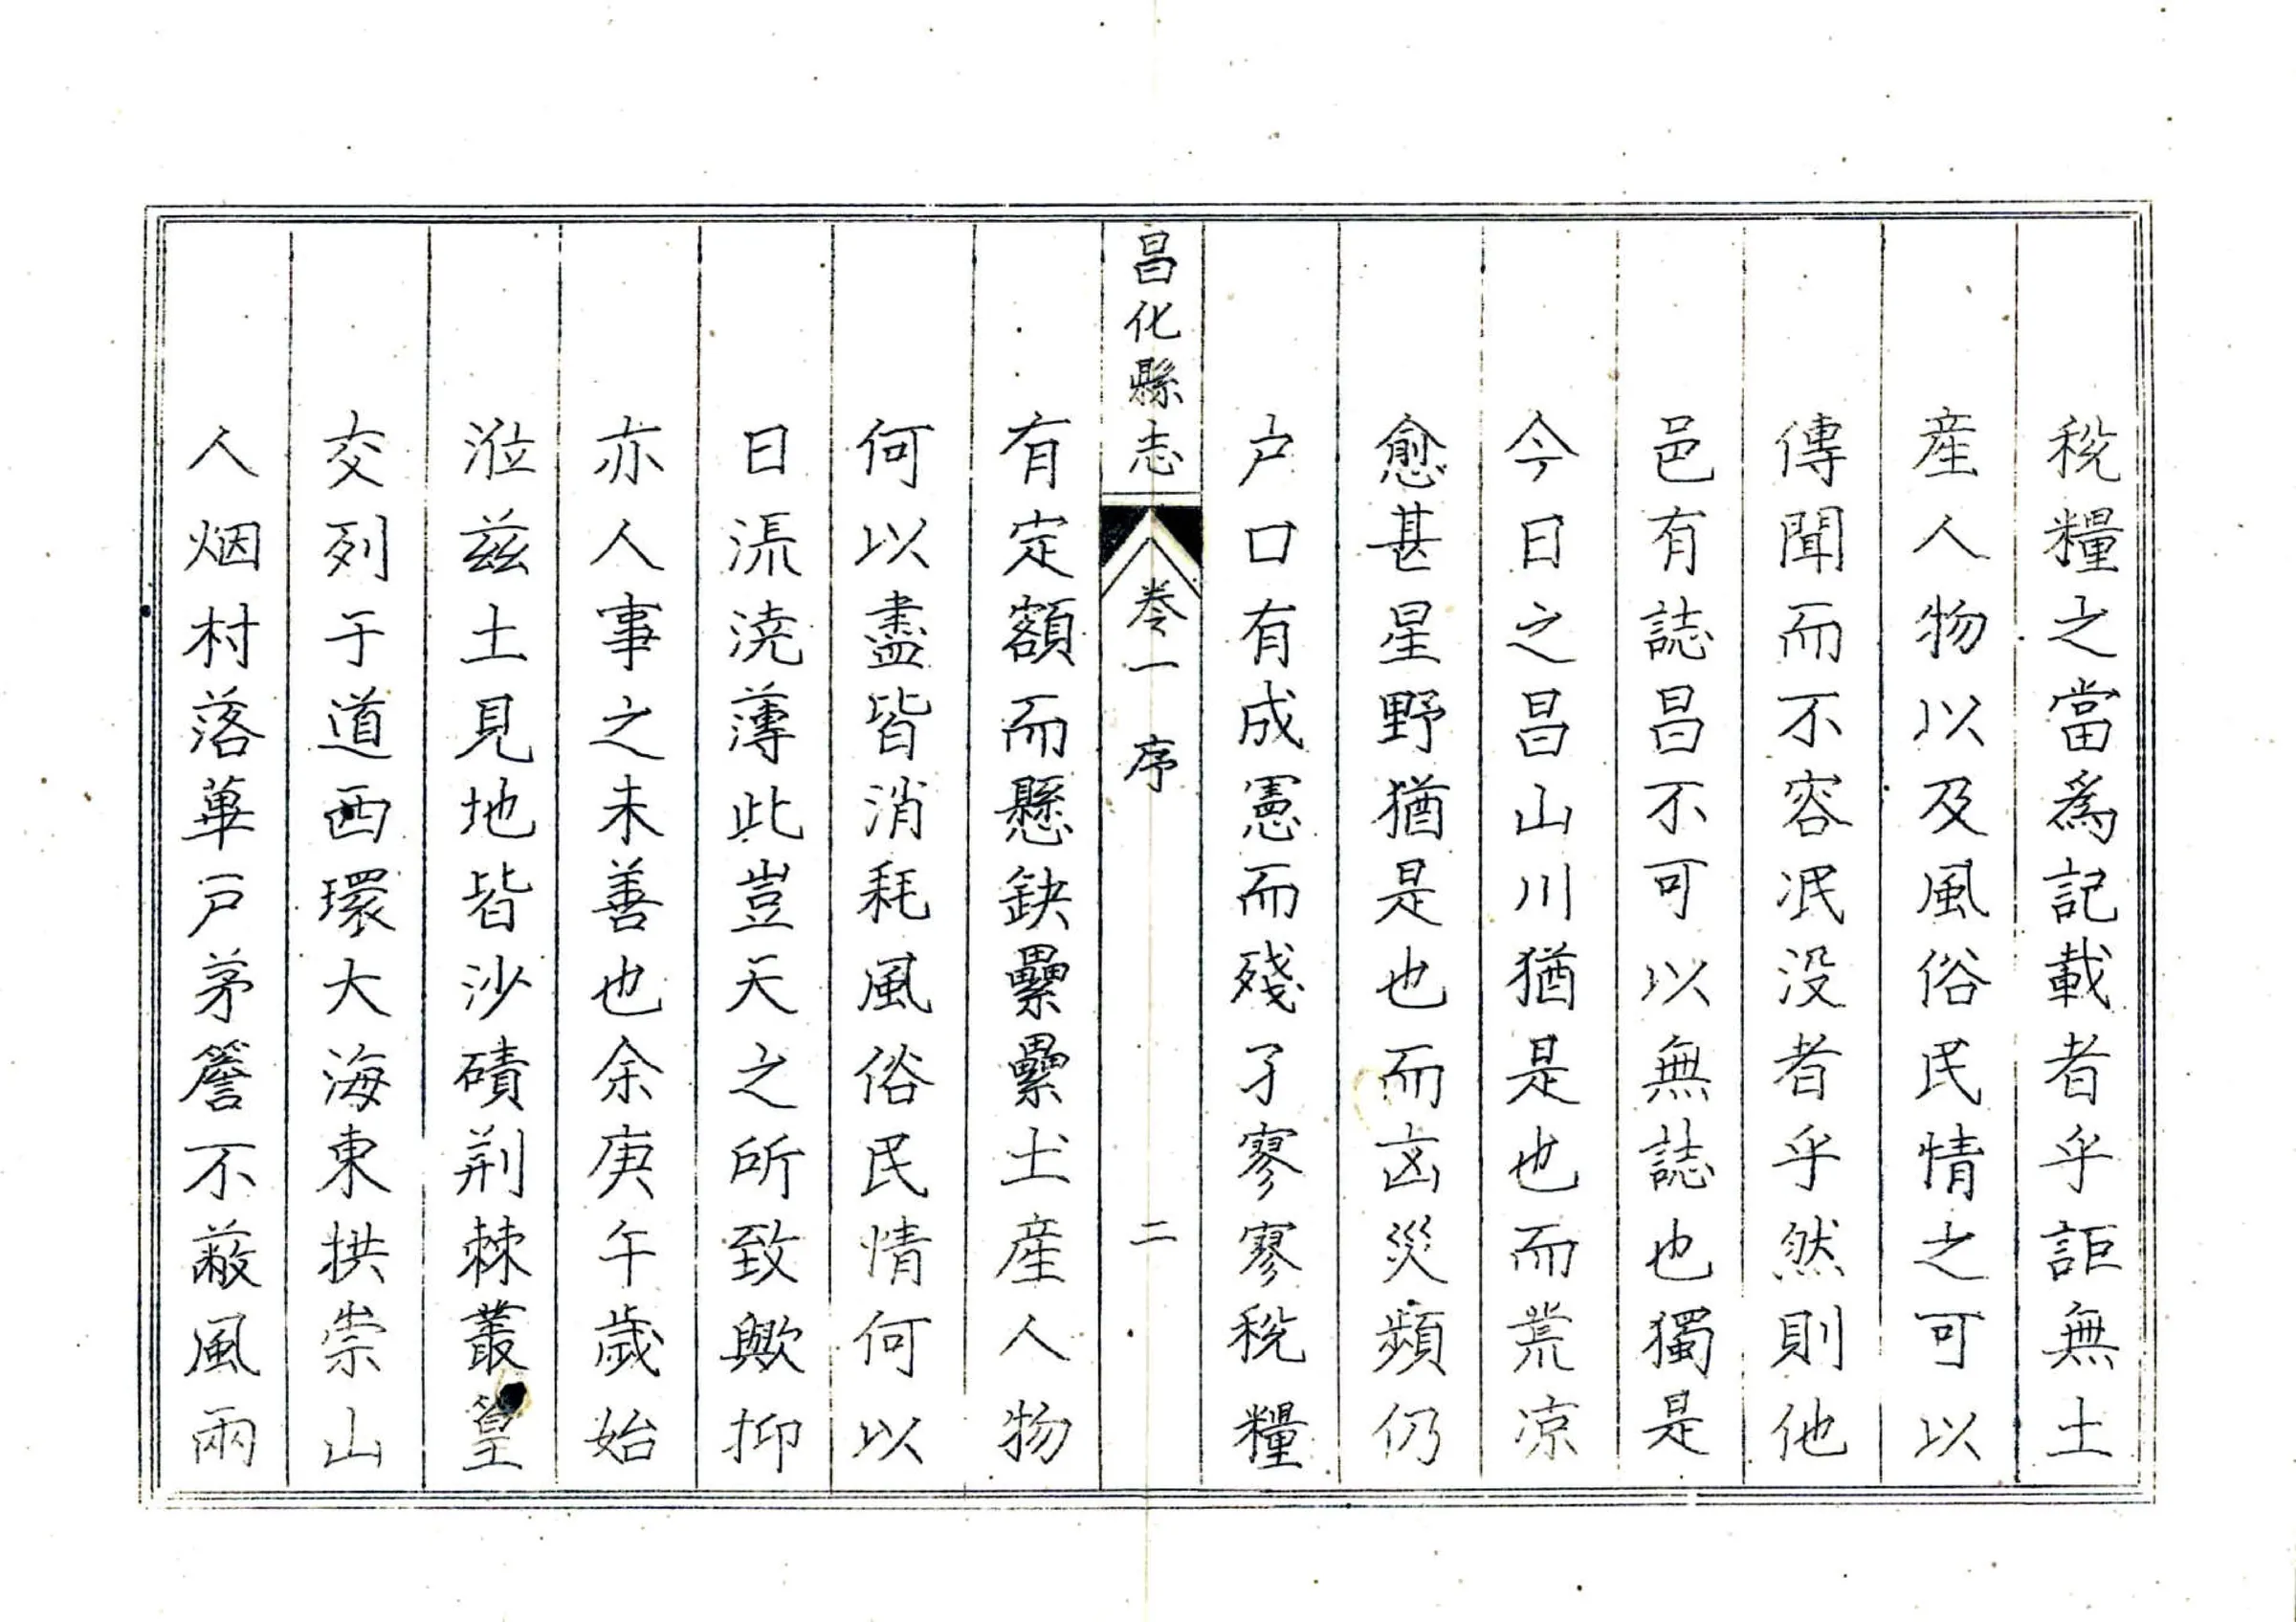 稅糧之當爲記載者乎詎無土
産人物以及風俗民情之可以
傳聞而不容泯没者乎然則他
邑有誌昌不可以無誌也獨是
今日之昌山川猶是也而荒凉
愈甚星野猶是也而凶災頻仍
户口有成憲而殘孑寥寥稅糧
昌化縣志
卷一
序
二
有定額而懸缺纍纍土産人物
何以盡皆消耗風俗民情何以
日漓澆薄此豈天之所致歟抑
亦人事之未善也余庚午歲始
涖兹土見地皆沙磧荆棘叢篁
交列于道西環大海東拱崇山
人烟村落蓽戸茅簷不蔽風雨